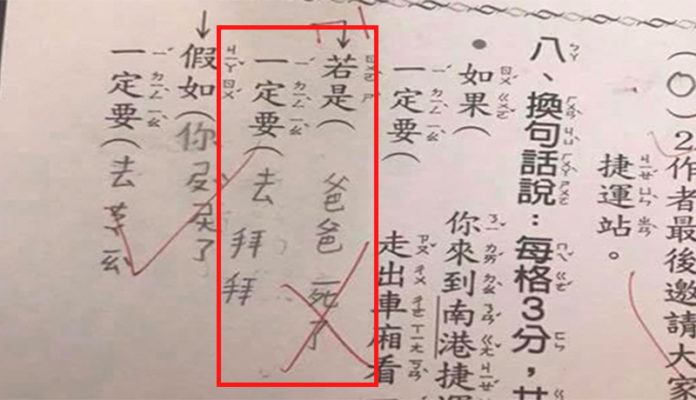 (○)2.作者最後邀請大家
捷運站。
八、換句話說：每格3分，
如果(你來到南港捷運
一定要(走出車廂看
若是(爸爸死了
一定要(去拜拜
假如(你 了
一定要(去